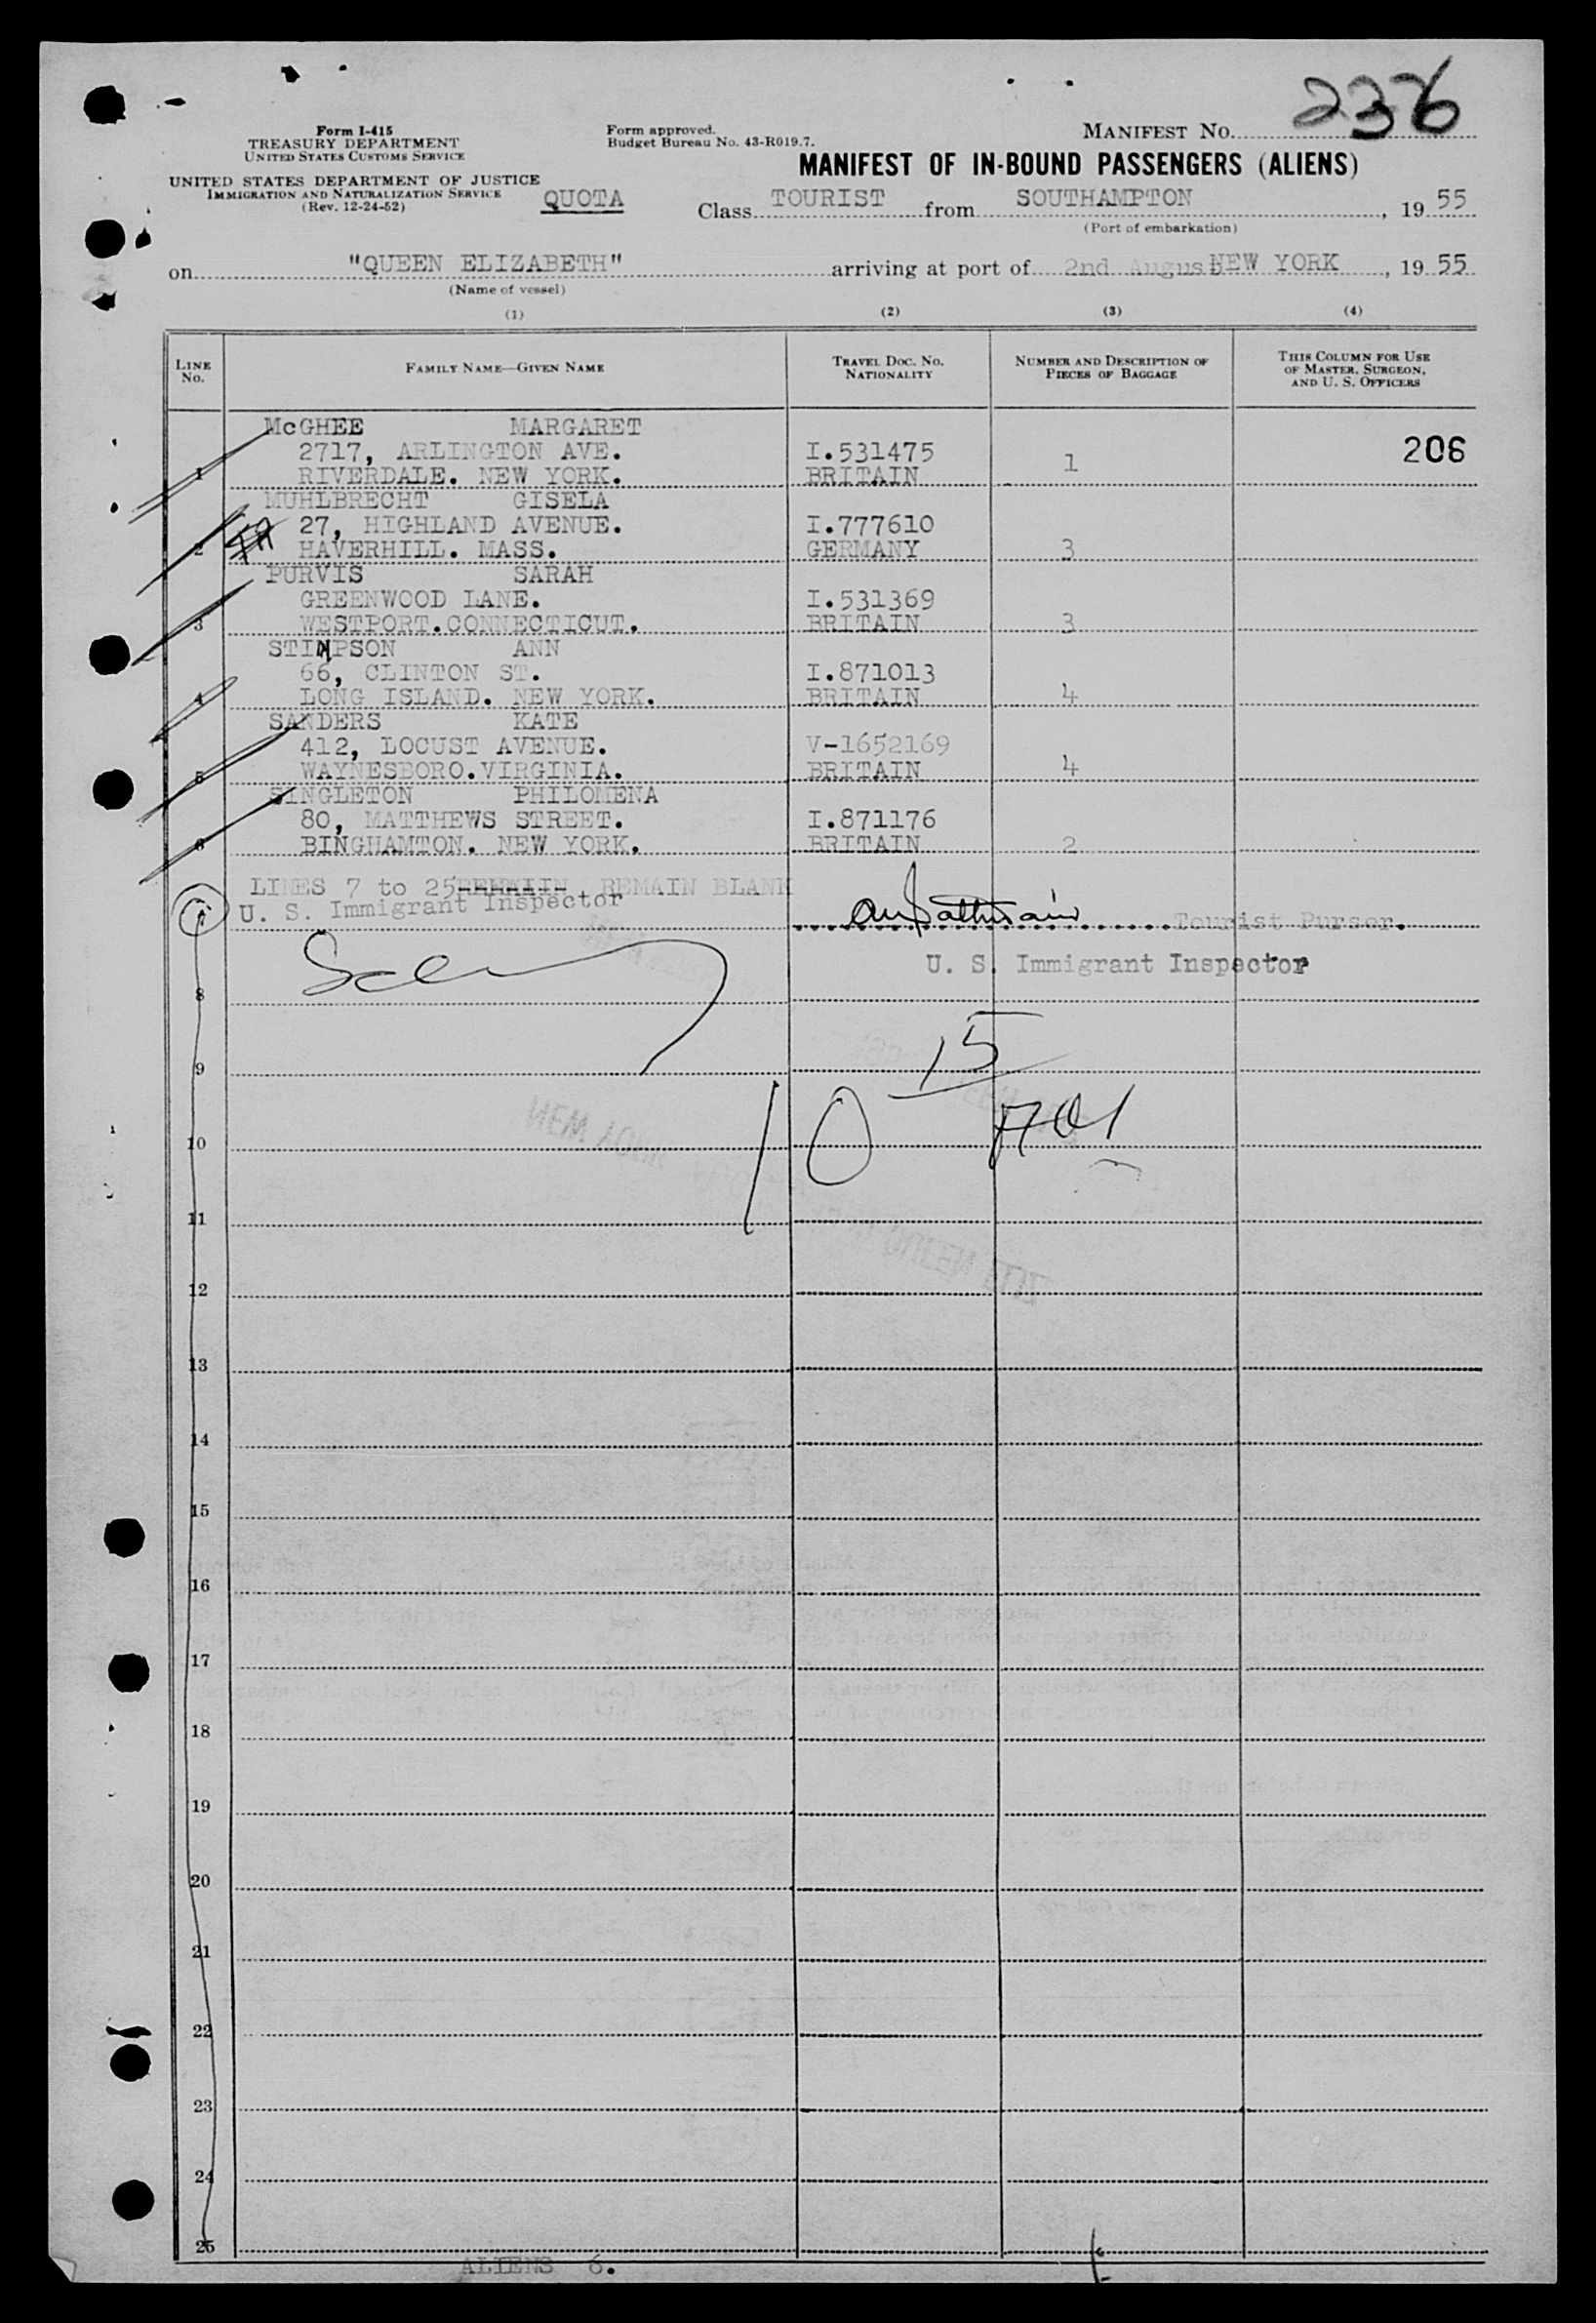 236
Form I-415
TREASURY DEPARTMENT
UNITED STATES CUSTOMS SERVICE
UNITED STATES DEPARTMENT OF JUSTICE
IMMIGRATION AND NATURALIZATION SERVICE
(Rev. 12-24-52)
QUOTA
Form approved.
Budget Bureau No. 43-R019.7.
MANIFEST NO.
MANIFEST OF IN-BOUND PASSENGERS (ALIENS)
Class TOURIST from SOUTHAMPTON, 19 55
(Port of embarkation)
on "QUEEN ELIZABETH" arriving at port of 2nd August NEW YORK, 19 55
(Name of vessel)
(1) (2) (3) (4)
LINE No. FAMILY NAME—GIVEN NAME TRAVEL DOC. NO. NATIONALITY NUMBER AND DESCRIPTION OF PIECES OF BAGGAGE THIS COLUMN FOR USE OF MASTER, SURGEON, AND U. S. OFFICERS
McGHEE MARGARET
2717, ARLINGTON AVE. I.531475 206
1 RIVERDALE. NEW YORK. BRITAIN 1
MUHLBRECHT GISELA
27, HIGHLAND AVENUE. I.777610
2 HAVERHILL. MASS. GERMANY 3
PURVIS SARAH
GREENWOOD LANE. I.531369
3 WESTPORT.CONNECTICUT. BRITAIN 3
STIMPSON ANN
66, CLINTON ST. I.871013
4 LONG ISLAND. NEW YORK. BRITAIN 4
SANDERS KATE
412, LOCUST AVENUE. V-1652169
5 WAYNESBORO.VIRGINIA. BRITAIN 4
SINGLETON PHILOMENA
80, MATTHEWS STREET. I.871176
6 BINGHAMTON. NEW YORK. BRITAIN 2
LINES 7 to 25 REMAIN REMAIN BLANK
7 U. S. Immigrant Inspector Tourist Purser.
U. S. Immigrant Inspector
8
15
9
10
10
11
12
13
14
15
16
17
18
19
20
21
22
23
24
25
ALIENS 6.